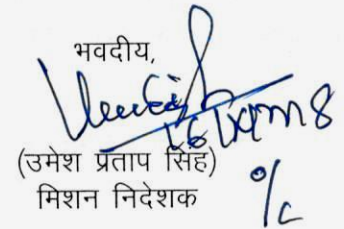 भवदीय,
(उमेश प्रताप सिंह)
मिशन निदेशक
o/c